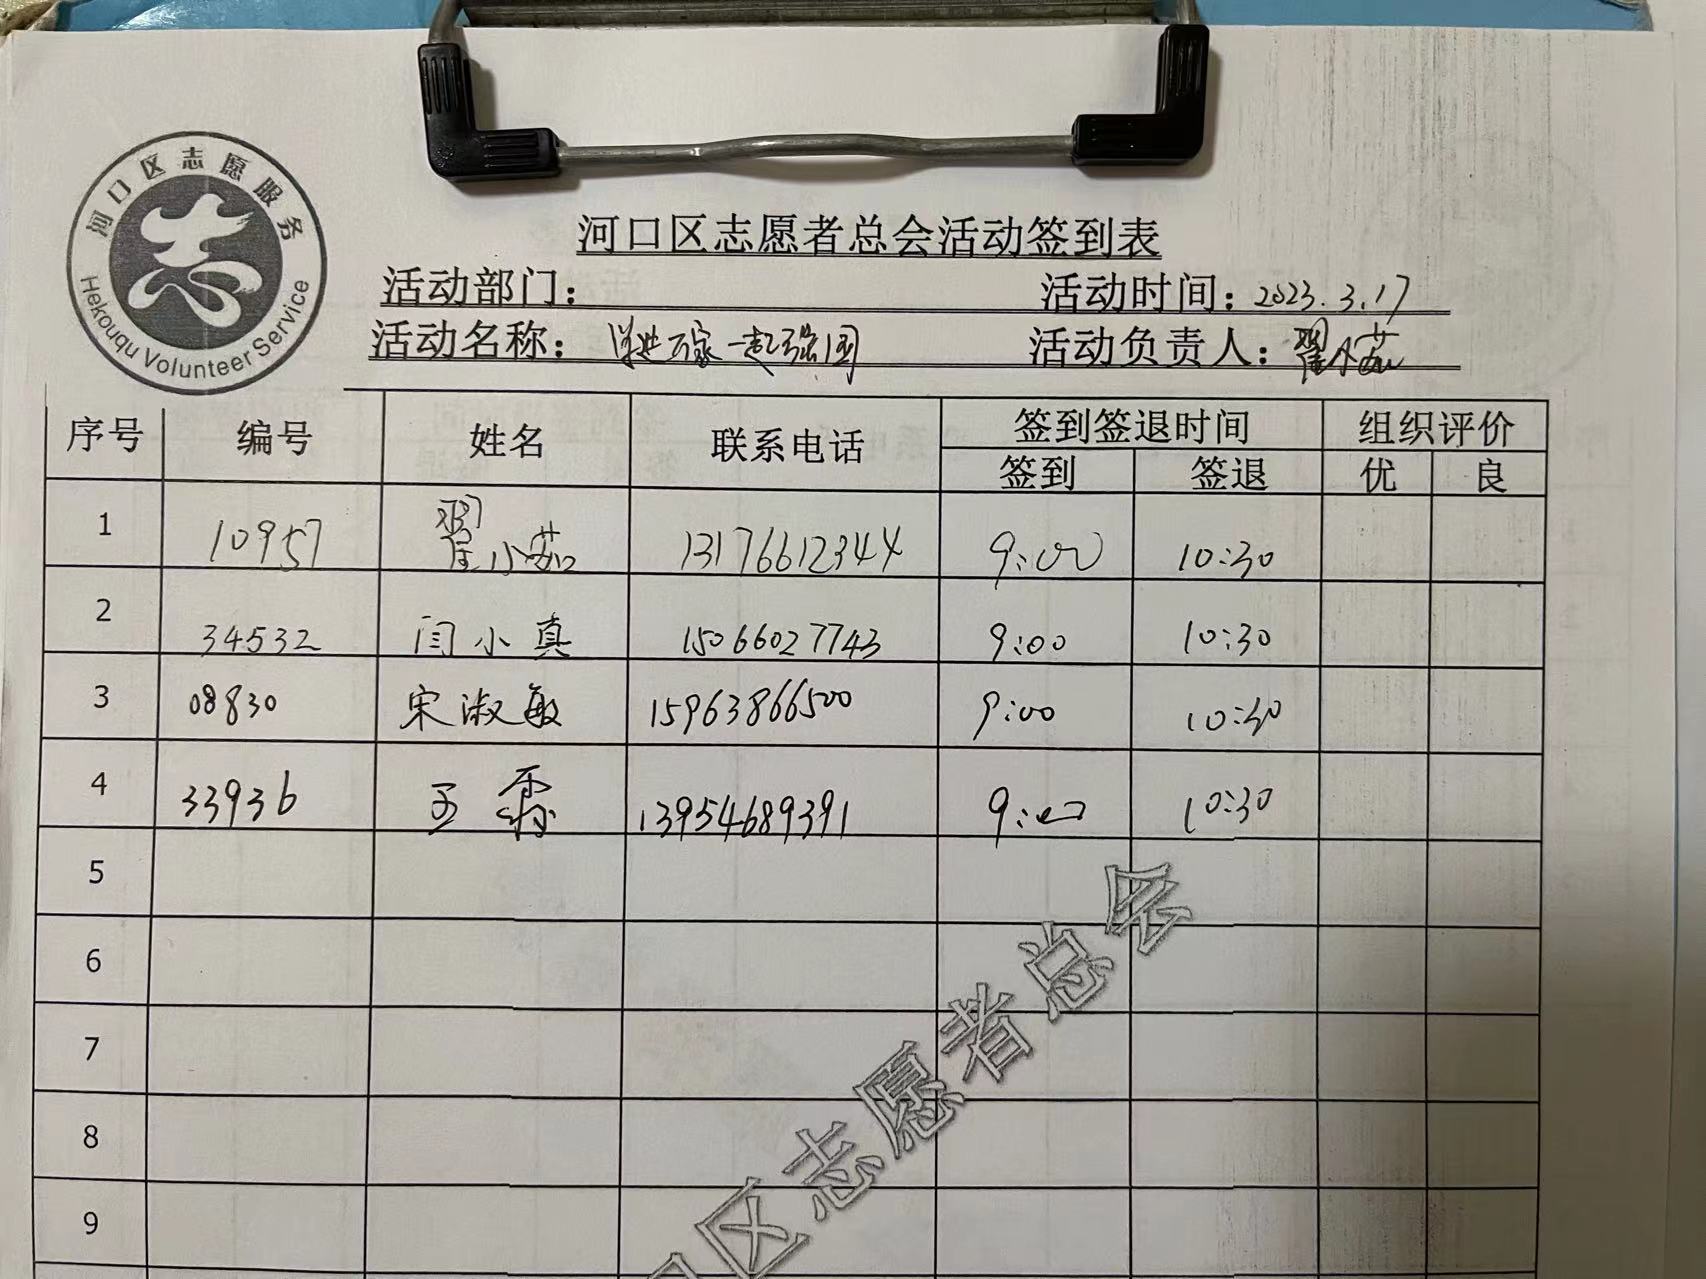 河口区志愿服务
Hekouqu Volunteer Service
河口区志愿者总会活动签到表
活动部门：
活动时间：2023.3.17
活动名称：学进万家一起强国
活动负责人：翟小茹
序号 编号 姓名 联系电话 签到签退时间 组织评价
签到 签退 优 良
1 10957 翟小茹 13176612344 9:00 10:30
2 34532 闫小真 15066027743 9:00 10:30
3 08830 宋淑敏 15963866500 9:00 10:30
4 33936 王霞 13954689391 9:00 10:30
5
6
7
8
9
口区志愿者总会